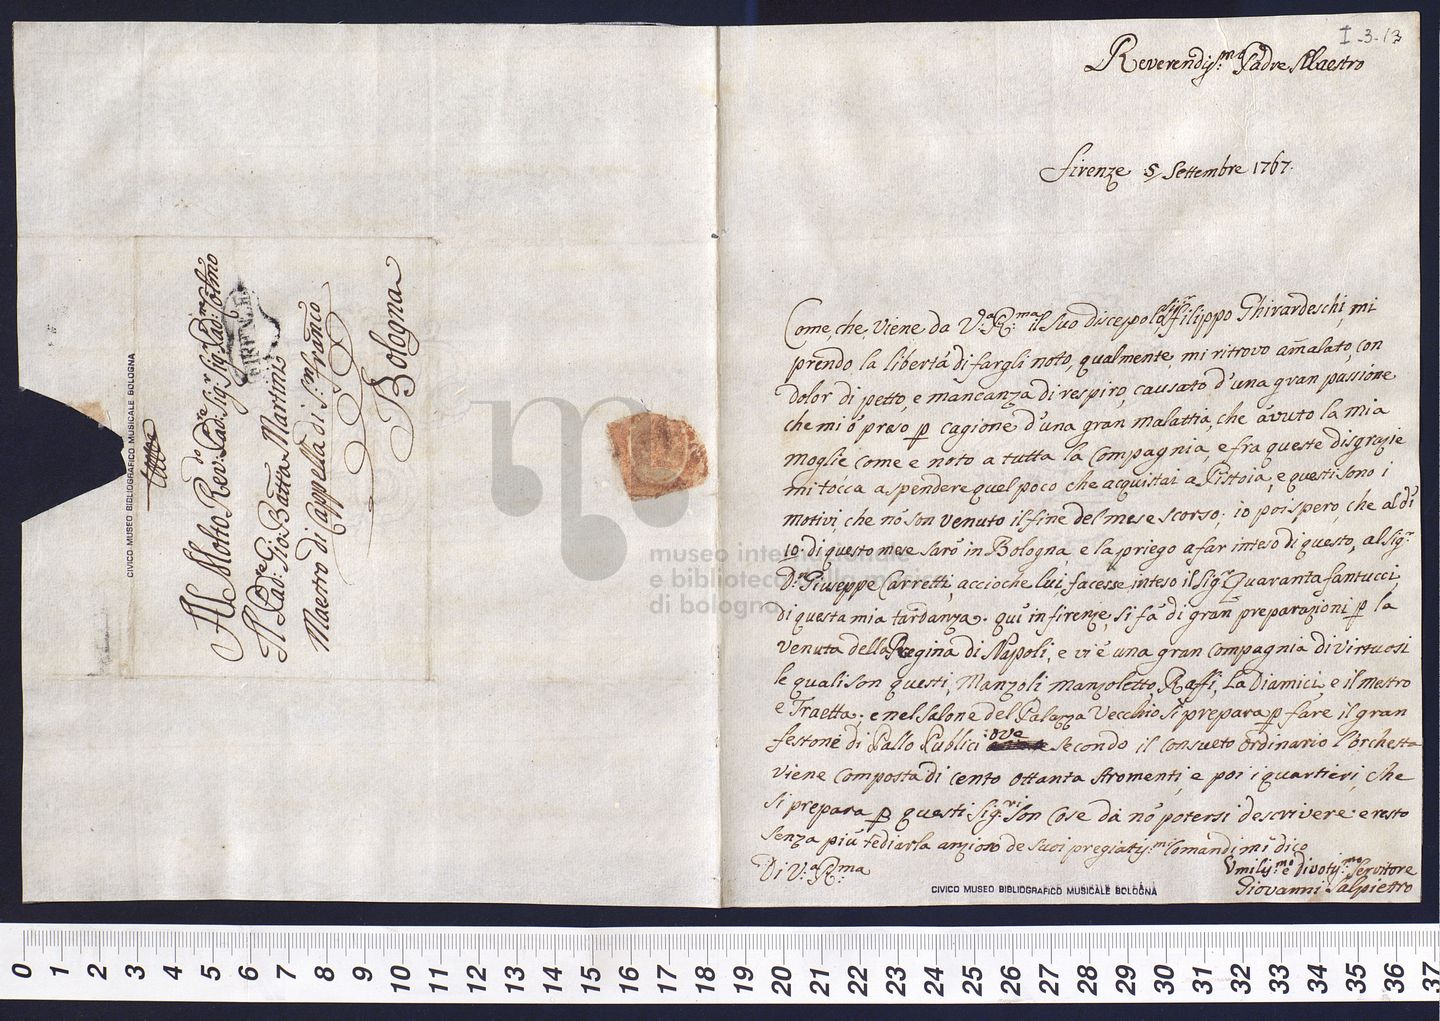 I-3-13
Reverendiss:mo Padre Maestro
Firenze 5 Settembre 1767.
Come che, viene da V:a R:ma il suo discepolo, sig.r Filippo Ghirardeschi, mi
prendo la libertá di fargli noto, qualmente, mi ritrovo amalato, con
dolor di petto, e mancanza di respiro, causato d'una gran passione
che mi ó preso p cagione d'una gran malattia, che ávuto la mia
moglie come e noto a tutta la Compagnia, e fra queste disgrazie
mi tócca a spendere quel poco che acquistai a Pistoia, e questi sono i
motivi, che nó son venuto il fine del mese scorso; io poi spero, che al dí
10: di questo mese saró in Bologna, e la priego a far inteso di questo, al Sig.r
D:n Giuseppe Carretti, accioche lui, facesse inteso il Sig.r Quaranta fantucci
di questa mia tardanza. qui in firenze, si fá di gran preparazioni p la
venuta della Regina di Napoli, e vi é una gran Compagnia di virtuosi
le quali son questi, Manzoli manzoletto, Raffi, La Diamici, e il mestro
e Traetta; e nel salone del Palazza Vecchio si prepara p fare il gran
festone di Pallo Publici: ove secondo il consueto ordinario l'orchesta
viene composta di cento ottanta stromenti, e poi i quartieri, che
si prepara p questi Sig:ri son cose da nó potersi descrivere: e resto
senza piú tediarla anzioso de suoi pregiatiss:mi Comandi mi dico
Di V:a R:ma
Umiliss:mo e divotiss:mo Servitore
Giovanni Salpietro
CIVICO MUSEO BIBLIOGRAFICO MUSICALE BOLOGNA
Al Molto Rev:do Pad:re Sig:r Sig:r Pad:ne Col:mo
Il Pad:re Gio: Batta Martini
Maestro di Cappella di S:n Franco
Bologna
FIRENZE
CIVICO MUSEO BIBLIOGRAFICO MUSICALE BOLOGNA
museo internazionale
e biblioteca della musica
di bologna
0 1 2 3 4 5 6 7 8 9 10 11 12 13 14 15 16 17 18 19 20 21 22 23 24 25 26 27 28 29 30 31 32 33 34 35 36 37